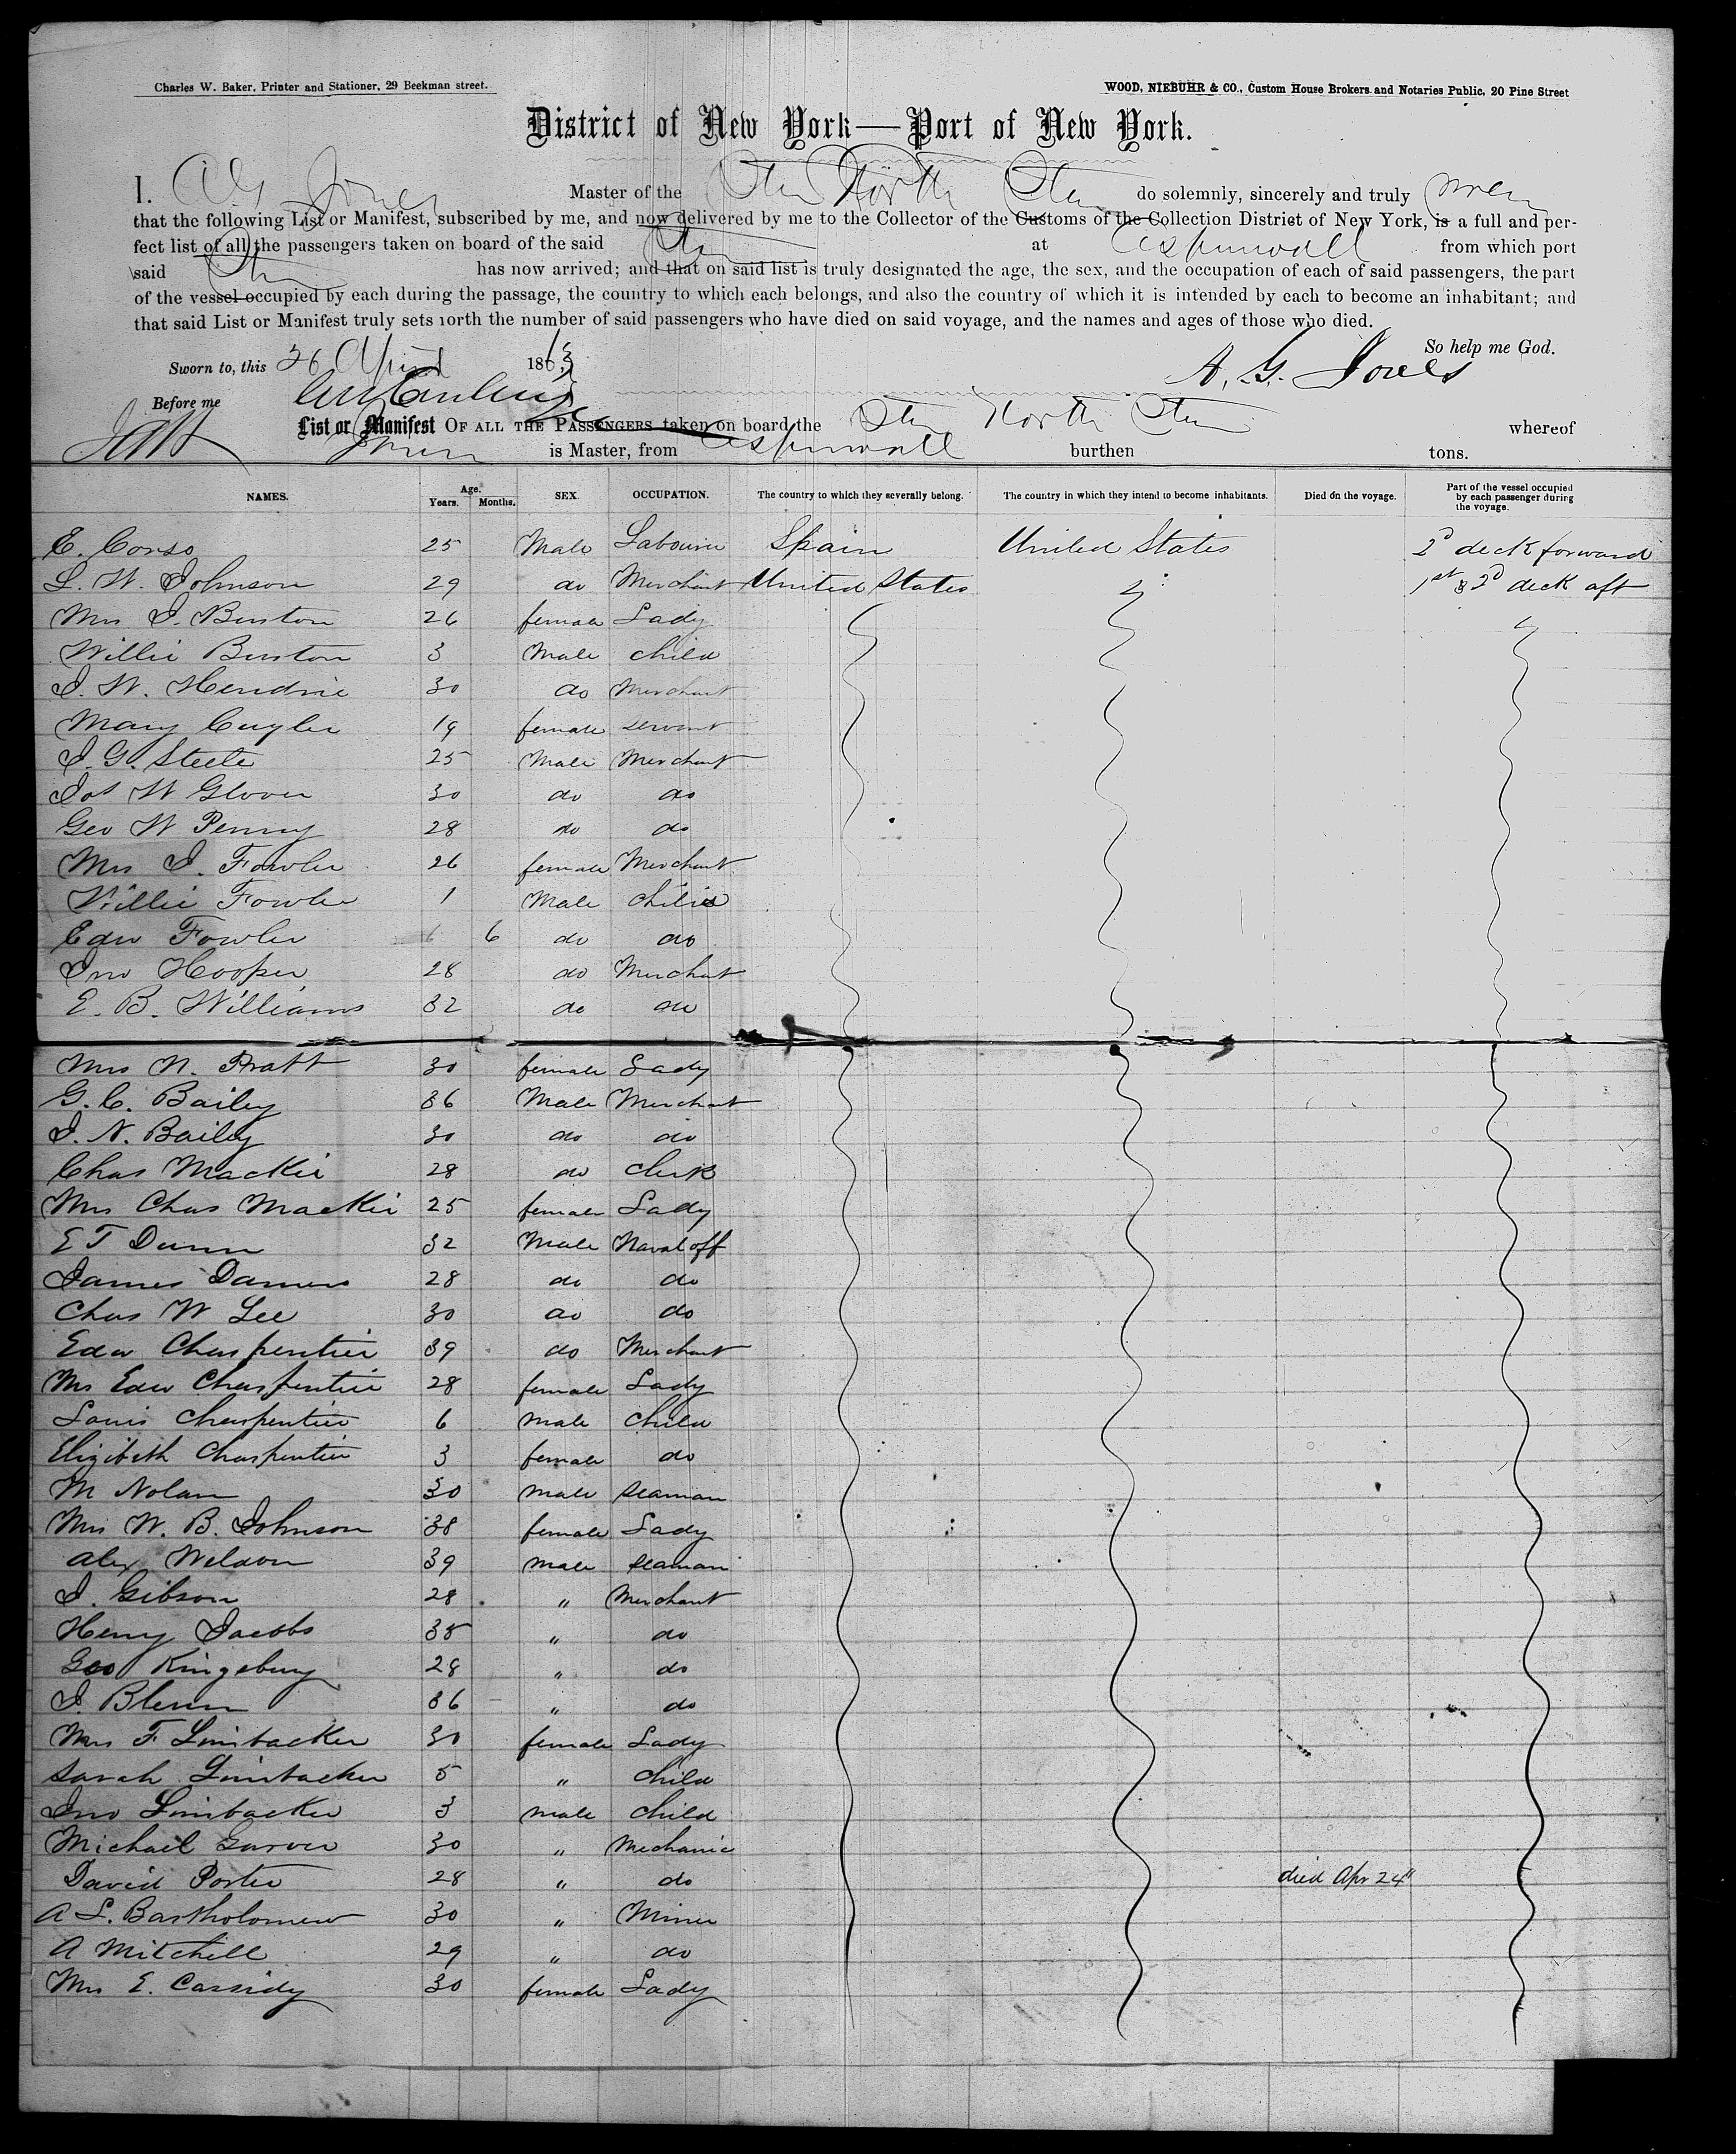 Charles W. Baker, Printer and Stationer, 29 Beekman street.
WOOD, NIEBUHR & CO., Custom House Brokers and Notaries Public, 20 Pine Street
District of New York—Port of New York.
I. A G Jones Master of the Str North Star do solemnly, sincerely and truly swear
that the following List or Manifest, subscribed by me, and now delivered by me to the Collector of the Customs of the Collection District of New York, is a full and per-
fect list of all the passengers taken on board of the said Str at Aspinwall from which port
said Str has now arrived; and that on said list is truly designated the age, the sex, and the occupation of each of said passengers, the part
of the vessel occupied by each during the passage, the country to which each belongs, and also the country of which it is intended by each to become an inhabitant; and
that said List or Manifest truly sets forth the number of said passengers who have died on said voyage, and the names and ages of those who died.
So help me God.
Sworn to, this 26 April 1863
A. G. Jones
Before me
List or Manifest OF ALL THE PASSENGERS taken on board the Str North Star whereof
Jones is Master, from Aspinwall burthen tons.
NAMES. Age. Years. Months. SEX. OCCUPATION. The country to which they severally belong. The country in which they intend to become inhabitants. Died on the voyage. Part of the vessel occupied by each passenger during the voyage.
E. Corso 25 Male Labourer Spain United States 2d deck forward
L. W. Johnson 29 do Merchant United States 1st & 2d deck aft
Mrs J. Burton 26 female Lady
Willie Burton 3 Male child
J. W. Hendrie 30 do Merchant
Mary Cuyler 19 female servant
J. G. Steele 25 Male Merchant
Jos W Glover 30 do do
Geo W Penny 28 do do
Mrs J. Fowler 26 female Merchant
Willie Fowler 1 Male child
Edw Fowler 6 6 do do
Jno Hooper 28 do Merchant
E. B. Williams 32 do do
Mrs N. Pratt 30 female Lady
G. C. Bailey 36 Male Merchant
J. N. Bailey 30 do do
Chas Mackie 28 do clerk
Mrs Chas Mackie 25 female Lady
E T Dunn 32 Male Naval off
James Damers 28 do do
Chas W Lee 30 do do
Edw Charpentier 39 do Merchant
Mrs Edw Charpentier 28 female Lady
Louis Charpentier 6 male child
Elizibeth Charpentier 3 female do
M Nolan 30 male seaman
Mrs W. B. Johnson 38 female Lady
Alex Weldon 39 male seaman
J. Gibson 28 " Merchant
Henry Jacobs 38 " do
Geo Kingsbury 28 " do
J. Blenn 36 " do
Mrs F Limbacker 30 female Lady
Sarah Limbacker 5 " child
Jno Limbacker 3 male child
Michael Garver 30 " Mechanic
David Porter 28 " do died Apr 24"
A L. Bartholomew 30 " Miner
A Mitchell 29 " do
Mrs E. Cassidy 30 female Lady